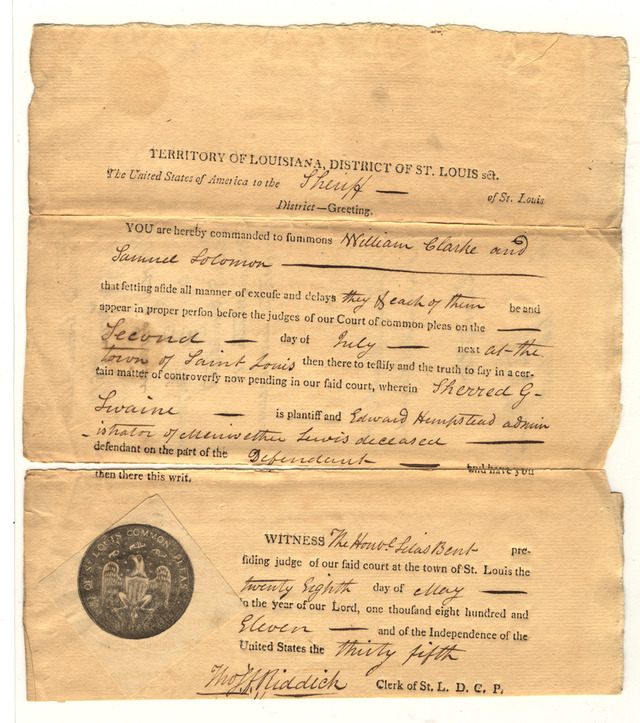 TERRITORY OF LOUISIANA, DISTRICT OF ST. LOUIS sct.
The United States of America to the Sheriff — of St. Louis
District—Greeting.
YOU are hereby commanded to summons William Clarke and
Samuel Solomon —
that setting aside all manner of excuse and delays they & each of them be and
appear in proper person before the judges of our Court of common pleas on the —
Second — day of July — next at the
town of Saint Louis then there to testify and the truth to say in a cer-
tain matter of controversy now pending in our said court, wherein Sherred G-
Swaine — is plaintiff and Edward Hempstead admin
-istrator of Meriwether Lewis deceased —
defendant on the part of the Defendant — and have you
then there this writ.
WITNESS The Honble Silas Bent pre-
siding judge of our said court at the town of St. Louis the
twenty Eighth day of May —
in the year of our Lord, one thousand eight hundred and
Eleven — and of the Independence of the
United States the thirty fifth
Thos F. Riddick Clerk of St. L. D. C. P.
OF ST LOUIS COMMON PLEAS